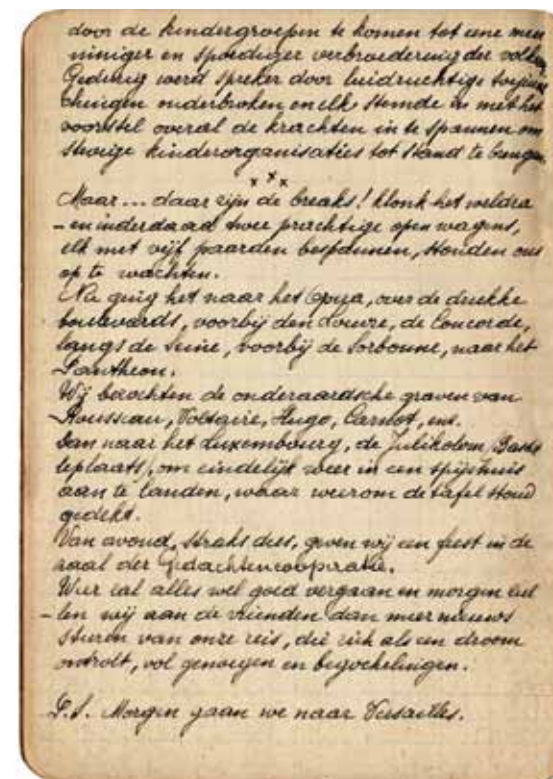 door de kindergroepen te komen tot eene men
niniger en spoediger verbroedering der volken
Gedurig werd spreker door luidruchtige toejuic
chingen onderbroken en elk stemde in met het
voorstel overal de krachten in te spannen om
stevige kinderorganisaties tot stand te brengen
x x x
Maar... daar zijn de breaks! klonk het weldra
- en inderdaad twee prachtige open wagens,
elk met vijf paarden bespannen, stonden ons
op te wachten.
Nu ging het naar het Opera, over de drukke
boulevards, voorbij den Louvre, de Concorde,
langs de Seine, voorbij de Sorbonne, naar het
Pantheon.
Wij bezochten de onderaardsche graven van
Rousseau, Voltaire, Hugo, Carnot, enz.
Dan naar het Luxembourg, de Julikolom, Basti
lleplaats, om eindelijk weer in een spijshuis
aan te landen, waar weerom de tafel stond
gedekt.
Van avond, straks dus, geven wij een feest in de
zaal der Gedachtencooperatie.
Weer zal alles wel goed vergaan en morgen zul
- len wij aan de vrienden dan meer nieuws
sturen van onze reis, die zich als een droom
ontrolt, vol genoegen en begoochelingen.
P.S. Morgen gaan we naar Versailles.